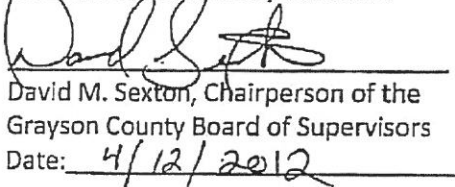 David Sexton
David M. Sexton, Chairperson of the
Grayson County Board of Supervisors
Date: 4/12/2012